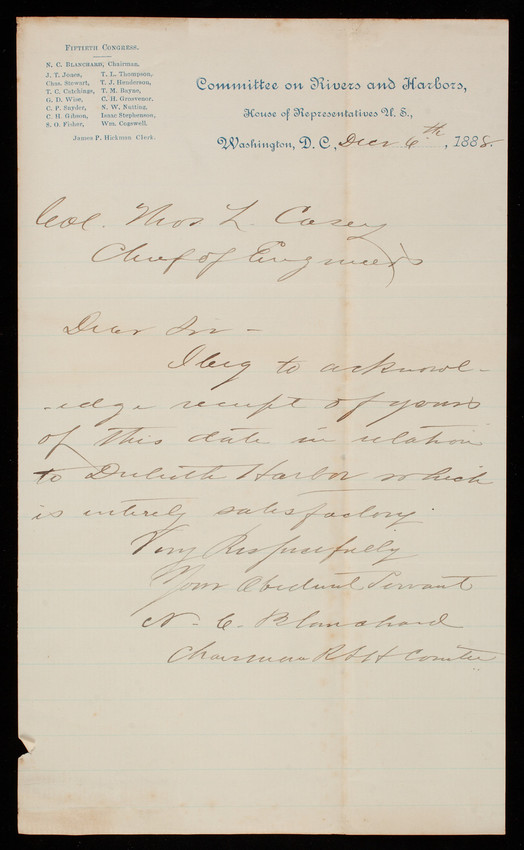 FIFTIETH CONGRESS.
N. C. BLANCHARD, Chairman.
J. T. Jones, T. L. Thompson,
Chas. Stewart, T. J. Henderson,
T. C. Catchings, T. M. Bayne,
G. D. Wise, C. H. Grosvenor,
C. P. Snyder, N. W. Nutting,
C. H. Gibson, Isaac Stephenson,
S. O. Fisher, Wm. Cogswell.
James P. Hickman Clerk.
Committee on Rivers and Harbors,
House of Representatives U. S.,
Washington, D. C., Decr 6th, 1888.
Col. Thos L. Casey
Chief of Engineers
Dear Sir -
I beg to acknowl-
-edge receipt of yours
of this date in relation
to Duluth Harbor which
is entirely satisfactory.
Very Respectfully
Your Obedient Servant
N. C. Blanchard
Chairman R & H Comtee